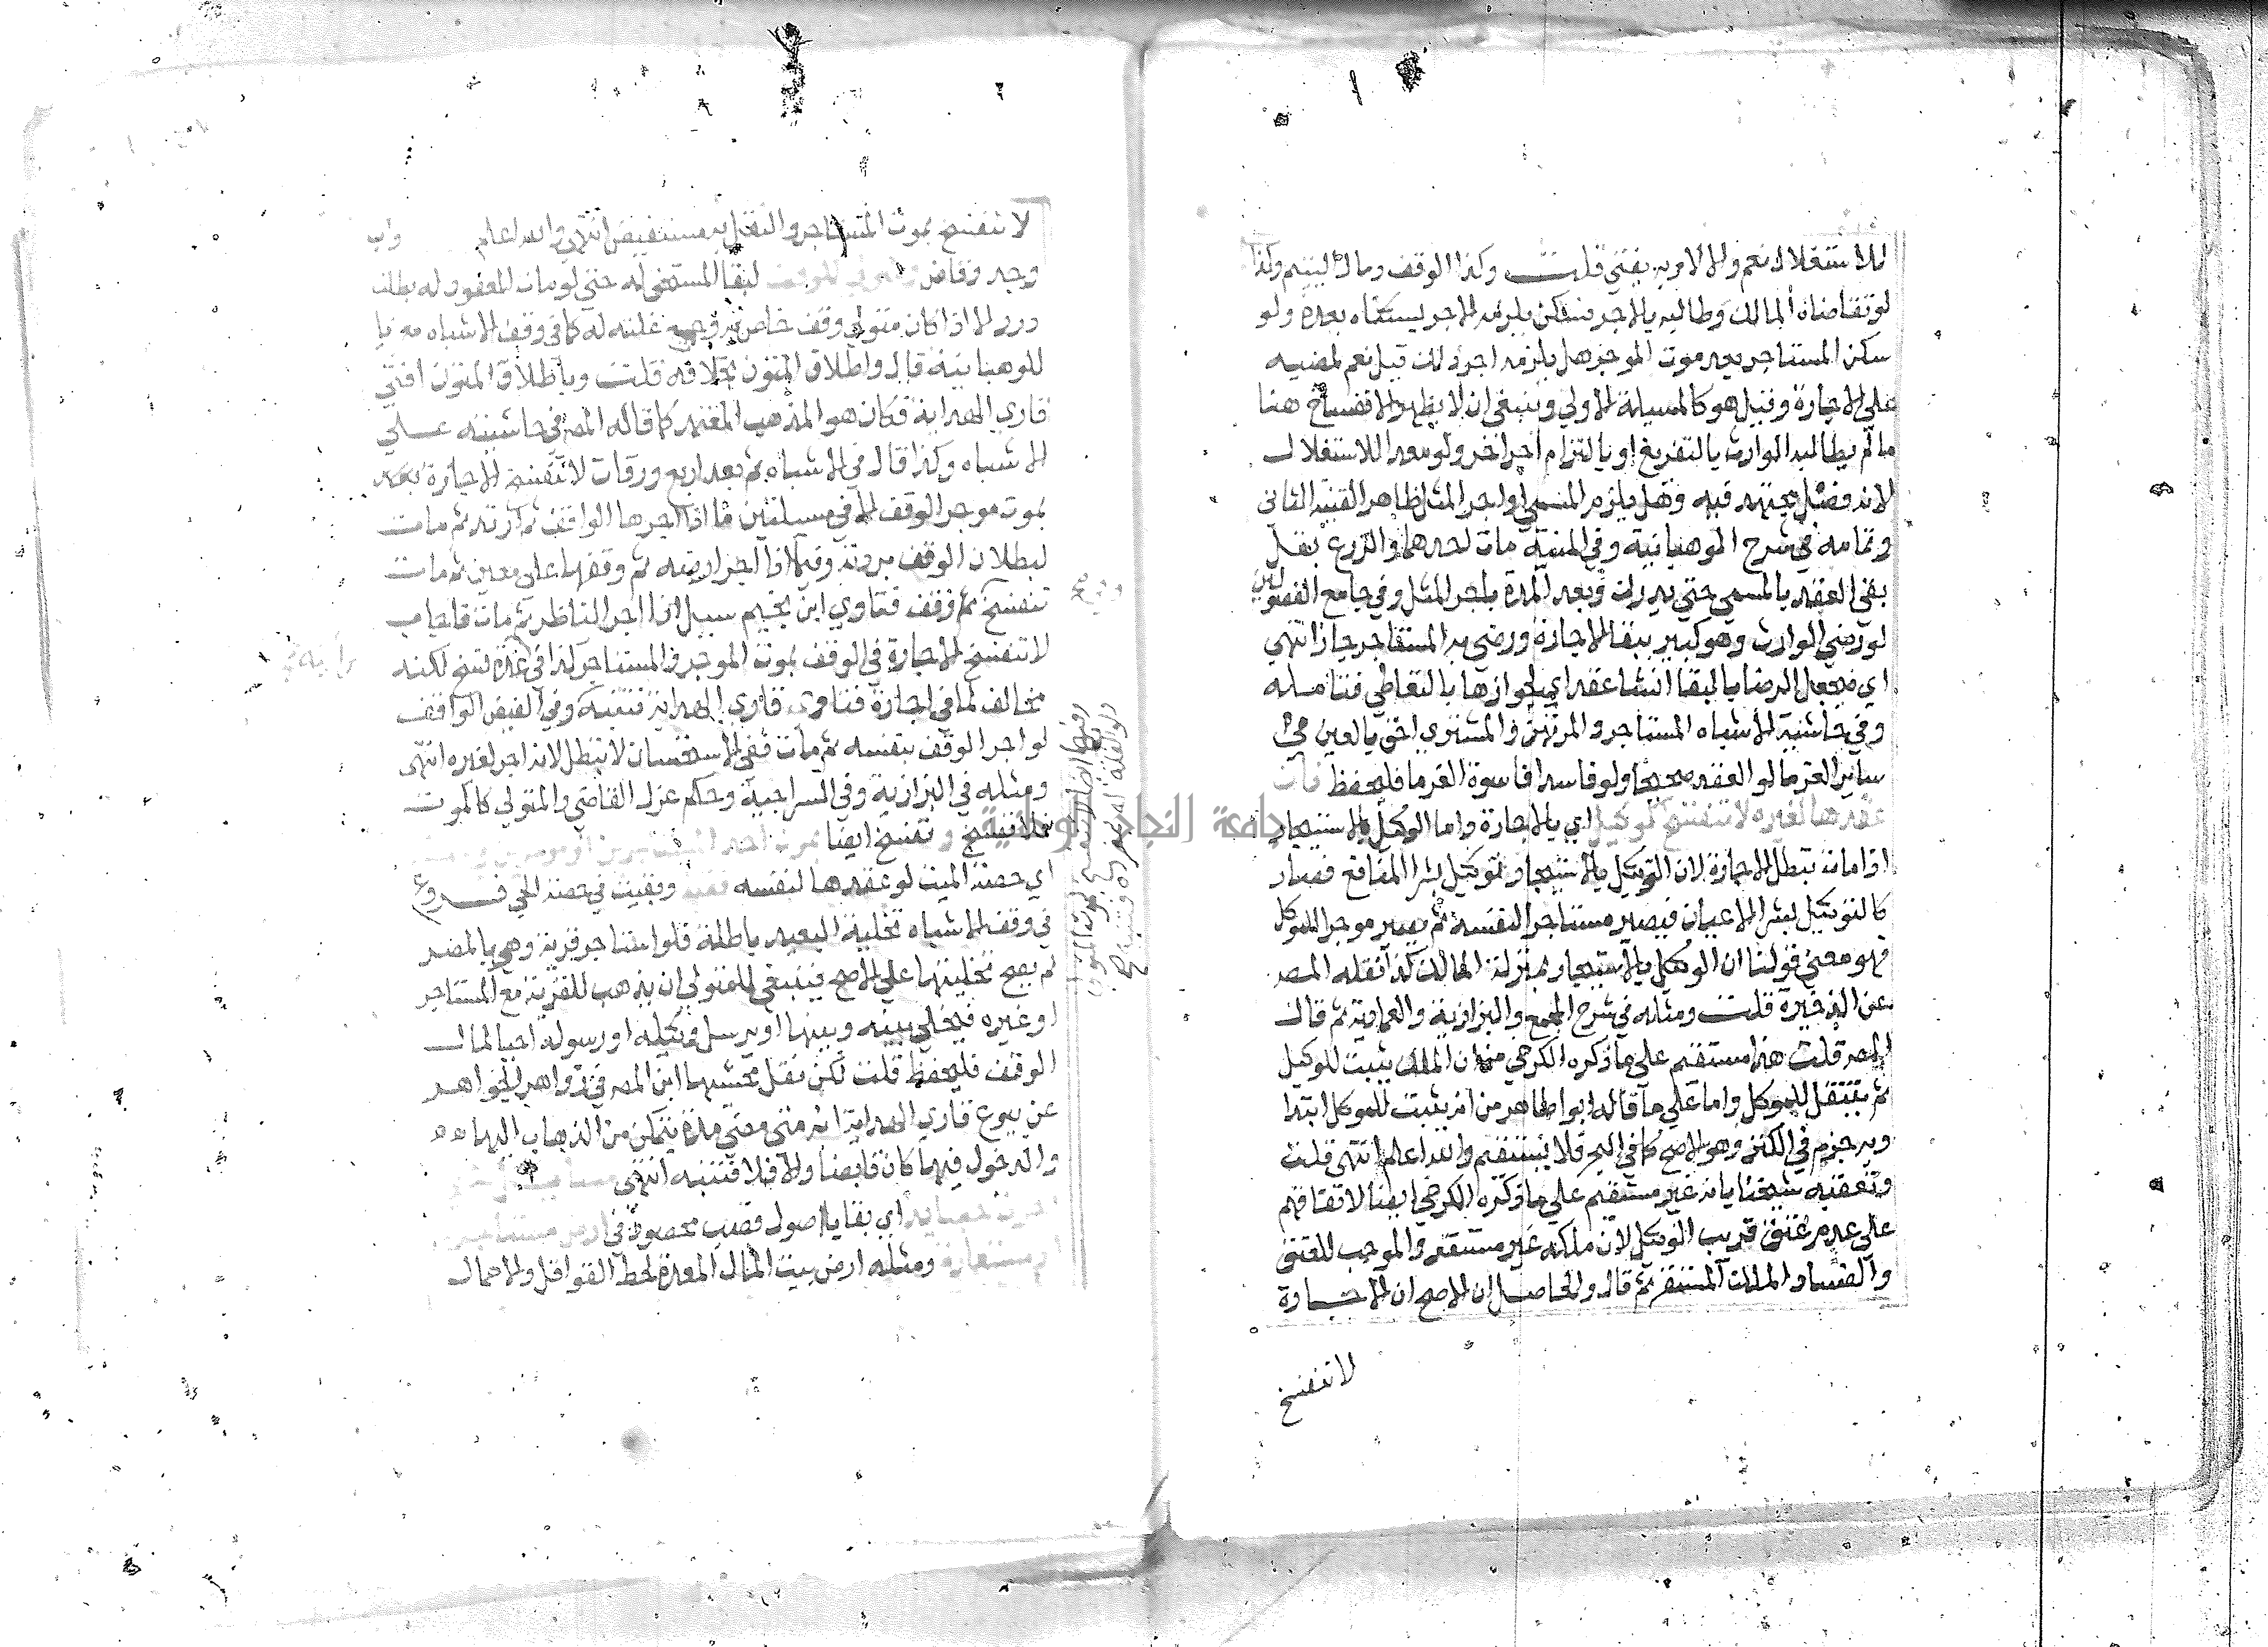 للاستغلال نعم والا لا وبه يفتي قلت وكذا الوقف ومال اليتيم وكذا
لو تقاضاه المالك وطالبه بالاجر فسكن يلزمه الاجر بسكناه بعده ولو
سكن المستاجر بعد موت الموجر هل يلزمه اجر ذلك قيل نعم لمضيه
علي الاجارة وقيل هو كالمسيلة الاولي وينبغي ان لا يظهر الانفساخ هنا
ما لم يطالبه الوارث بالتفريغ او بالتزام اجر اخر ولو معدا للاستغلال
لانه فصل مجتهد فيه وهل يلزم المسمي او اجر المثل ظاهر القنية الثاني
وتمامه في شرح الوهبانية وفي المنية مات احدهما والزرع بقل
بقي العقد بالمسمي حتي يدرك وبعد المدة باجر المثل وفي جامع الفصولين
لو رضي الوارث وهو كبير ببقا الاجارة ورضي به المستاجر جاز انتهي
اي فيجعل الرضا بالبقا انشا عقد اي لجوازها بالتعاطي فتامله
وفي حاشية الاشباه المستاجر والمرتهن والمشتري احق بالعين من
ساير الغرما لو العقد صحيحا ولو فاسدا فاسوة الغرما فليحفظ فان
عقدها لغيره لا تنفسخ كوكيل اي بالاجارة واما الوكيل بالاستيجار
اذا مات تبطل الاجارة لان التوكيل بالاستيجار توكيل بشرا المنافع فصار
كالتوكيل بشرا الاعيان فيصير مستاجرا لنفسه ثم يصير موجرا للموكل
فهو معني قولنا ان الوكيل بالاستيجار بمنزلة المالك كذا نقله المصـ
عن الذخيرة قلت ومثله في شرح المجمع والبزازية والعمادية ثم قال
المصـ قلت هذا مستقيم علي ما ذكره الكرخي من ان الملك يثبت للوكيل
ثم ينتقل للموكل واما علي ما قاله ابو طاهر من انه يثبت للموكل ابتدا
وبه جزم في الكنز وهو الاصح كما في البحر فلا يستقيم والله اعلم انتهي قلت
وتعقبه شيخنا بانه غير مستقيم علي ما ذكره الكرخي ايضا لاتفاقهم
علي عدم عتق قريب الوكيل لان ملكه غير مستقر والموجب للعتق
والفساد الملك المستقر ثم قال والحاصل ان الاصح ان الاجارة
لا تنفسخ
لا تنفسخ بموت المستاجر والنقل به مستفيض انتهي والله اعلم
للوقف لبقا المستحق له حتي لو مات المعقود له بطلت
درر الا اذا كان متولي وقف خاص وجميع غلته له كما في وقف الاشباه
للوهبانية قال واطلاق المتون بخلافه قلت وباطلاق المتون افتي
قاري الهداية فكان هو المذهب المعتمد كما قاله المصـ في حاشيته علي
الاشباه وكذا قال في الاشباه بعد اربع ورقات لا تنفسخ الاجارة
بموت موجر الوقف الا في مسيلتين ما اذا اجرها الواقف ثم ارتد ثم مات
لبطلان الوقف بردته وفيما اذا اجر ارضه ثم وقفها علي معين ثم مات
تنفسخ ثم وقف فتاوي ابن نجيم سيل اذا اجر الناظر ثم مات فاجاب
لا تنفسخ الاجارة في الوقف بموت الموجر والمستاجر كذا في عدة نسخ لكنه
مخالف لما في اجارة فتاوي قاري الهداية فتنبه وفي الفيض الواقف
لو اجر الوقف بنفسه ثم مات ففي الاستحسان لا تبطل لانه اجر لغيره انتهي
ومثله في البزازية وفي السراجية وحكم عزل القاضي والمتولي كالموت
فلا تنفسخ وتنفسخ ايضا بموت احد
اي حصة الميت لو عقدها لنفسه فقط وبقيت في حصة الحي فــروع
في وقف الاشباه تخلية البعيد باطلة فلو استاجر قرية وهو بالمصر
لم يصح تخليتها علي الاصح فينبغي للمتولي ان يذهب للقرية مع المستاجر
او غيره فيخلي بينه وبينها او يرسل وكيله او رسوله احيا لمال
الوقف فليحفظ قلت لكن نقل محشيها ابن المصـ في زواهر الجواهر
عن بيوع قاري الهداية انه متي مضي مدة يتمكن من الذهاب اليها
والدخول فيها كان قابضا والا فلا فتنبه انتهي
اي بقايا اصول قصب محصود في ارض مستاجرة
او مستعارة ومثله ارض بيت المال المعدة لحط القوافل والاحمال